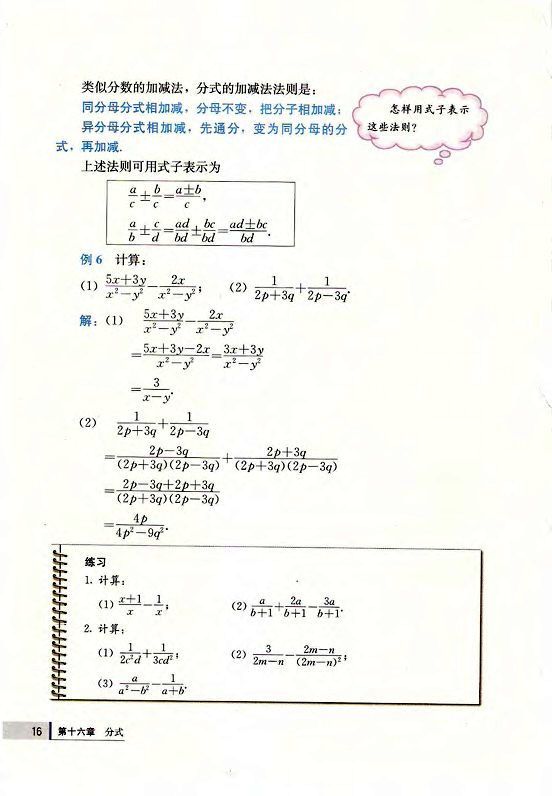 类似分数的加减法，分式的加减法法则是：
同分母分式相加减，分母不变，把分子相加减；
异分母分式相加减，先通分，变为同分母的分
式，再加减.
怎样用式子表示
这些法则？
上述法则可用式子表示为
a/c ± b/c = (a±b)/c，
a/b ± c/d = ad/bd ± bc/bd = (ad±bc)/bd.
例6 计算：
(1) (5x+3y)/(x²−y²) − 2x/(x²−y²)； (2) 1/(2p+3q) + 1/(2p−3q).
解：(1) (5x+3y)/(x²−y²) − 2x/(x²−y²)
= (5x+3y−2x)/(x²−y²) = (3x+3y)/(x²−y²)
= 3/(x−y).
(2) 1/(2p+3q) + 1/(2p−3q)
= (2p−3q)/((2p+3q)(2p−3q)) + (2p+3q)/((2p+3q)(2p−3q))
= (2p−3q+2p+3q)/((2p+3q)(2p−3q))
= 4p/(4p²−9q²).
练习
1. 计算：
(1) (x+1)/x − 1/x； (2) a/(b+1) + 2a/(b+1) − 3a/(b+1).
2. 计算：
(1) 1/(2c²d) + 1/(3cd²)； (2) 3/(2m−n) − (2m−n)/(2m−n)²；
(3) a/(a²−b²) − 1/(a+b).
16 第十六章 分式